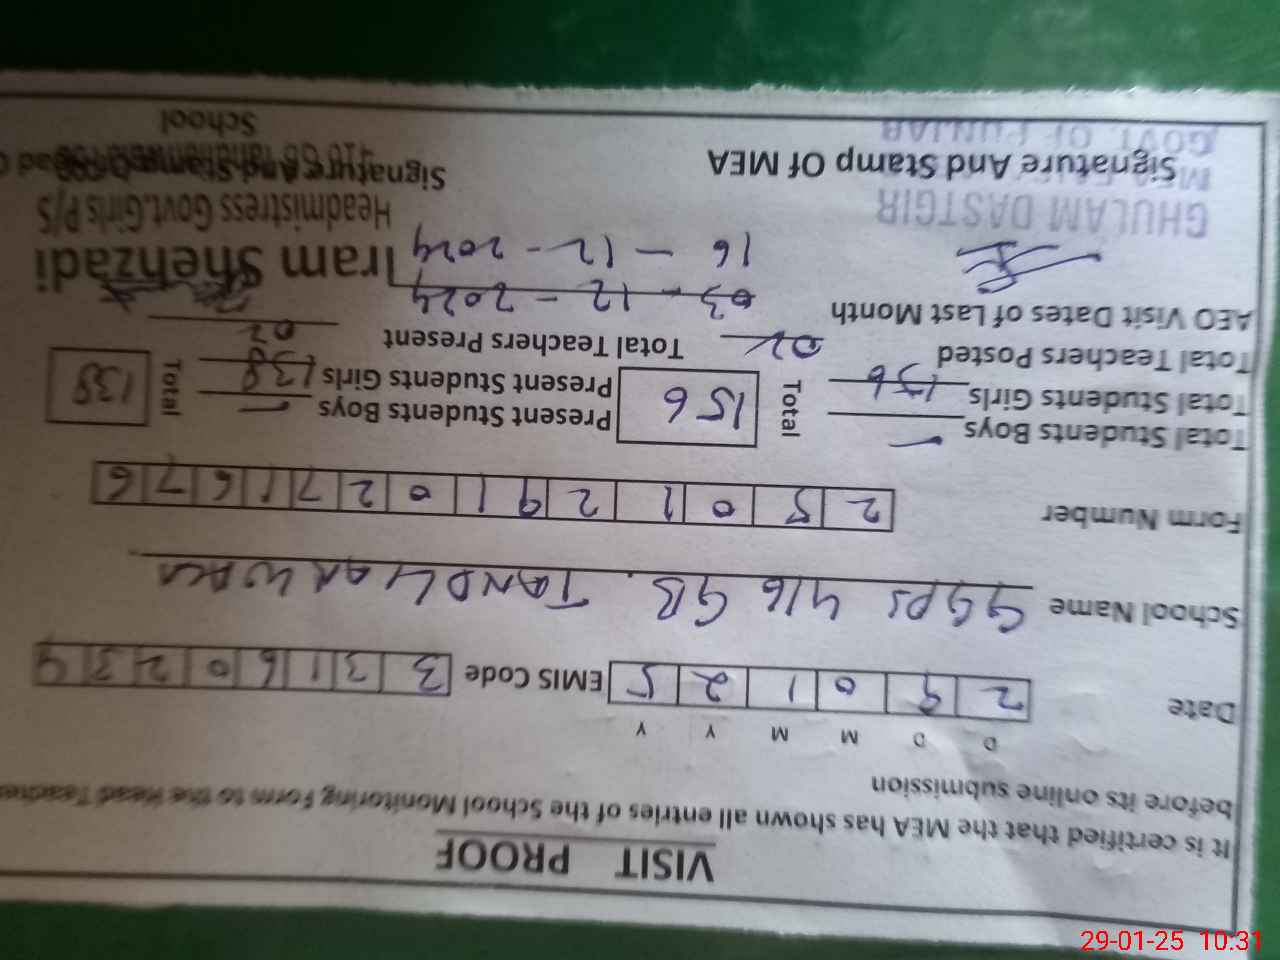 VISIT PROOF
It is certified that the MEA has shown all entries of the School Monitoring Form to the Head Teacher
before its online submission
D D M M Y Y
Date 2 9 0 1 2 5 EMIS Code 3 3 1 6 0 2 3 9
School Name GGPS 416 GB. TANDLIANWALA
Form Number 2 5 0 1 2 9 1 0 2 7 1 6 7 6
Total Students Boys – Total 156 Present Students Boys – Total 138
Total Students Girls 156 Present Students Girls 138
Total Teachers Posted 02 Total Teachers Present 02
AEO Visit Dates of Last Month 03-12-2024
16-12-2024
Iram Shehzadi
GHULAM DASTGIR
Headmistress Govt.Girls P/S
Signature And Stamp Of MEA Signature And Stamp Of
GOVT. OF PUNJAB
School
29-01-25 10:31